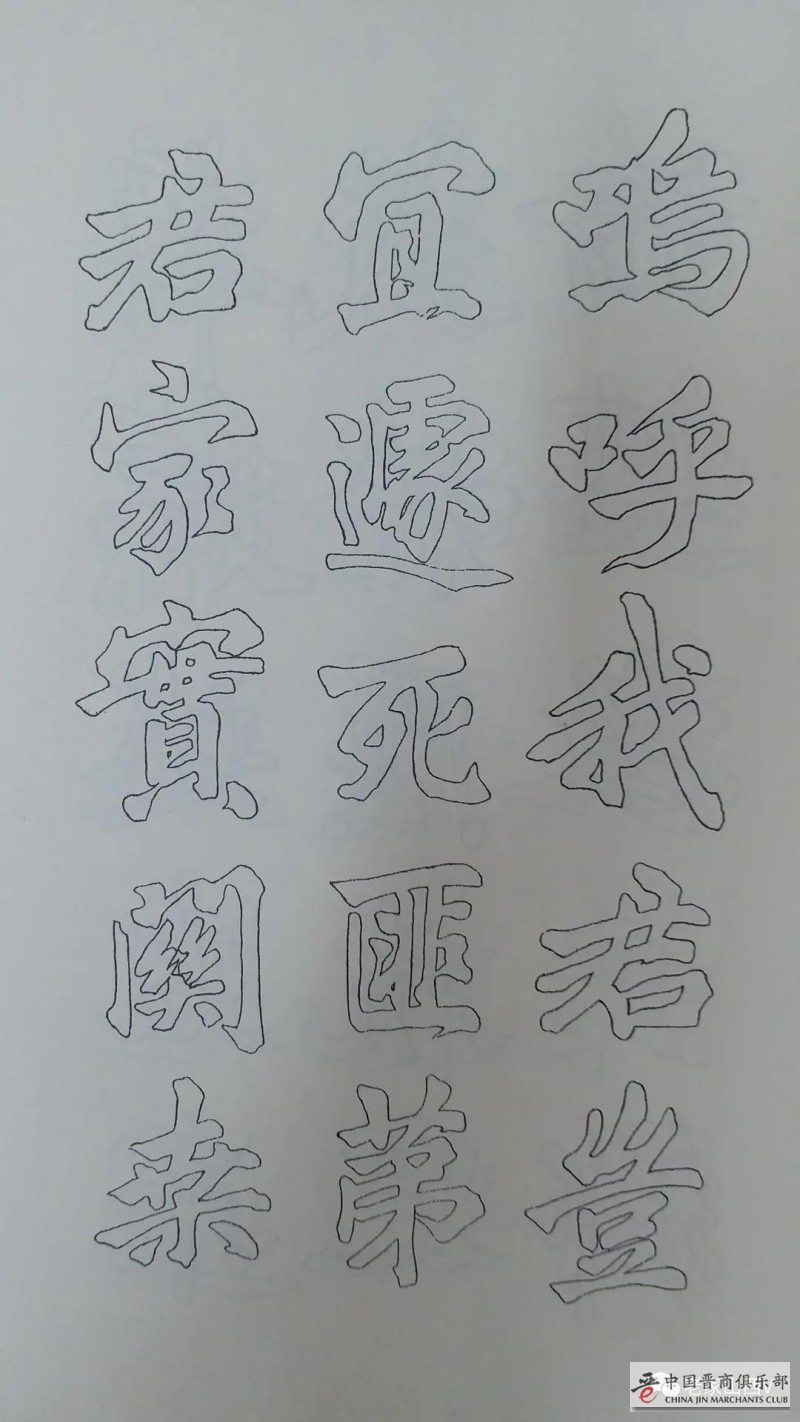 嗚呼我君豈
冝遽死匪苐
君家實關桒
中国晋商俱乐部
CHINA JIN MARCHANTS CLUB